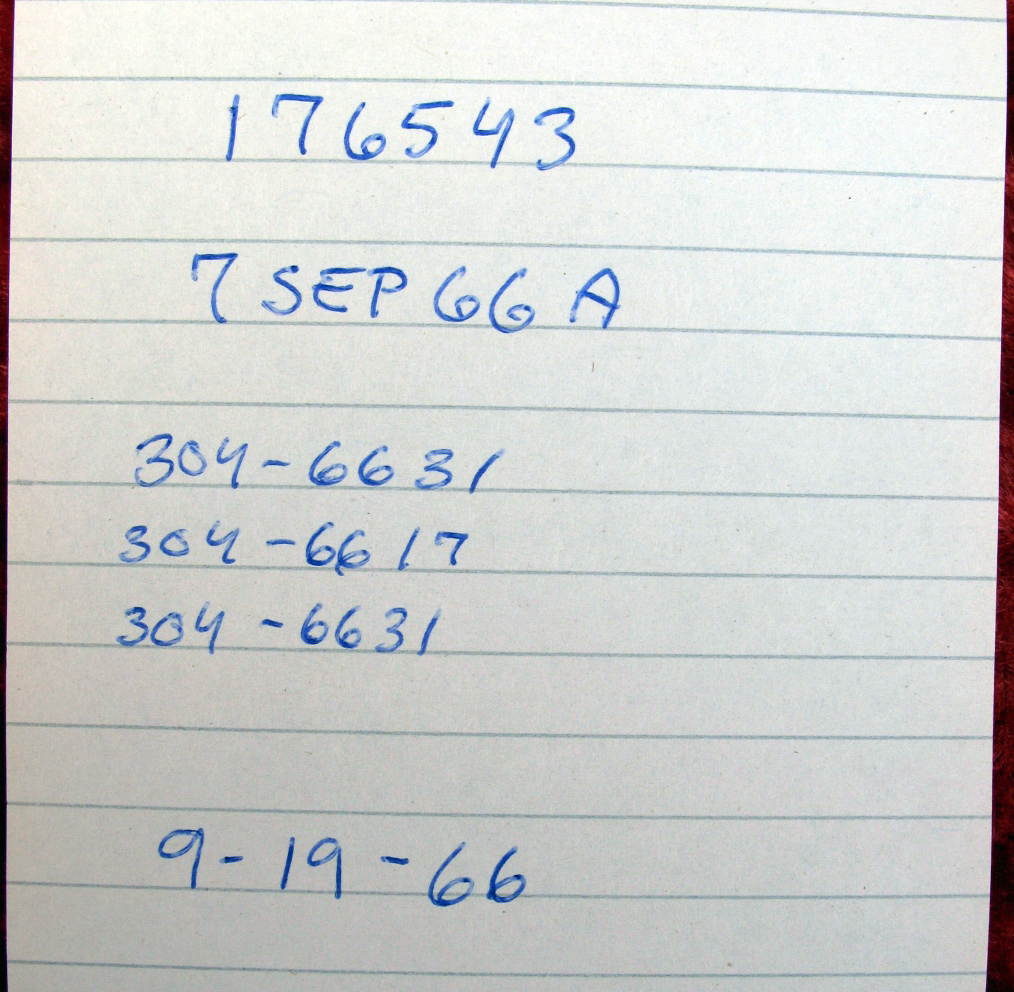 176543
7 SEP 66 A
304-6631
304-6617
304-6631
9-19-66